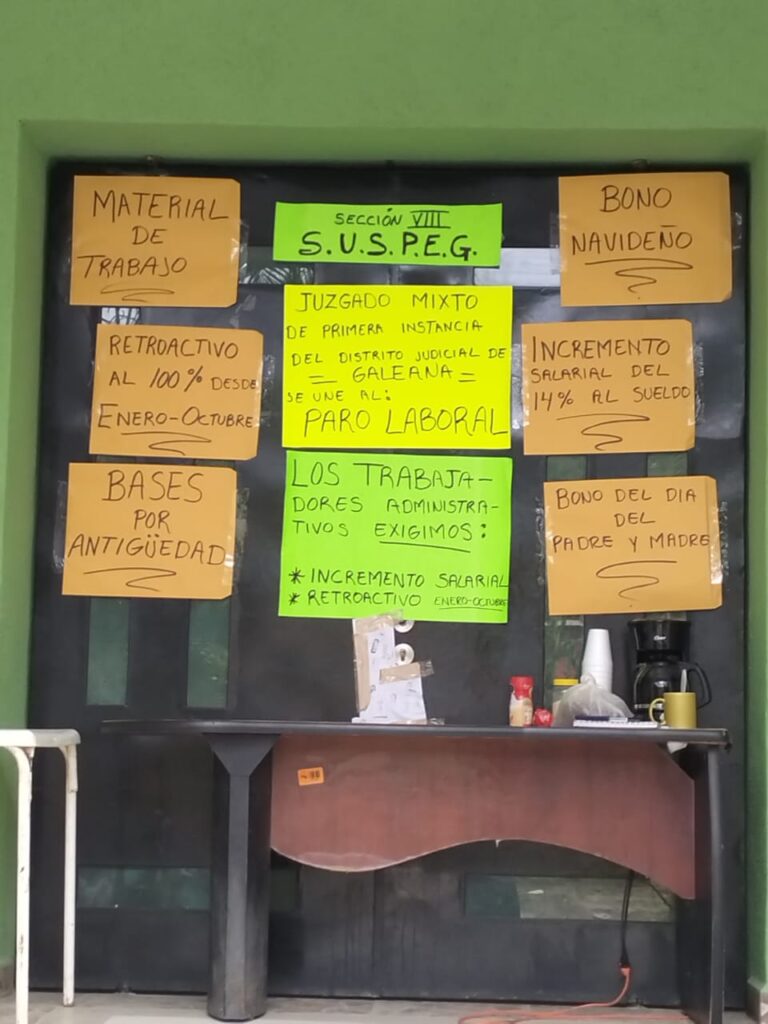 MATERIAL
DE
TRABAJO
RETROACTIVO
AL 100% DESDE
ENERO-OCTUBRE
BASES
POR
ANTIGÜEDAD
SECCIÓN VIII
S.U.S.P.E.G.
JUZGADO MIXTO
DE PRIMERA INSTANCIA
DEL DISTRITO JUDICIAL DE
= GALEANA =
SE UNE AL:
PARO LABORAL
LOS TRABAJA-
DORES ADMINISTRA-
TIVOS EXIGIMOS:
* INCREMENTO SALARIAL
* RETROACTIVO ENERO-OCTUBRE
BONO
NAVIDEÑO
INCREMENTO
SALARIAL DEL
14% AL SUELDO
BONO DEL DIA
DEL
PADRE Y MADRE